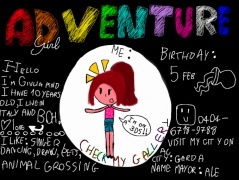 ADVENTURE
Girl
ME:
BIRTHDAY:
5 FEB
HELLO
I'M GIULIA AND
I HAVE 10 YEARS
OLD, I LIVE IN
ITALY AND
I LIKE: SINGER
DANCING, DRAW, PETS,
ANIMAL CROSSING
I'm on 3DS!!
CHECK MY GALLERY
VISIT MY CITY ON
CITY: GARDA
NAME MAYOR: ALE